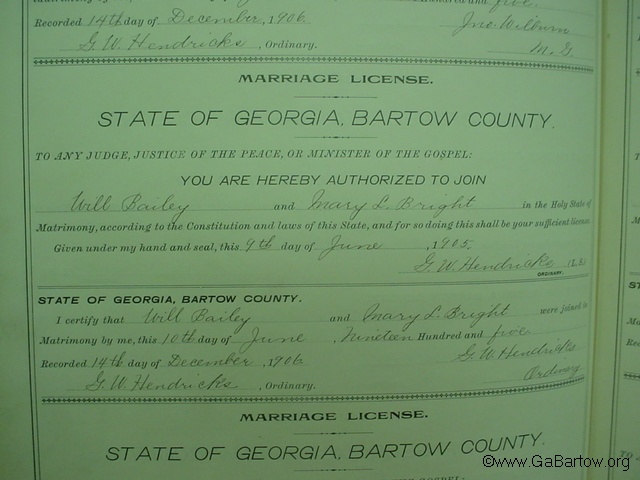 Hundred and five.
Recorded 14th day of December, 1906. Jno Wilburn
G. W. Hendricks, Ordinary. M. G.
MARRIAGE LICENSE.
STATE OF GEORGIA, BARTOW COUNTY.
TO ANY JUDGE, JUSTICE OF THE PEACE, OR MINISTER OF THE GOSPEL:
YOU ARE HEREBY AUTHORIZED TO JOIN
Will Bailey and Mary L. Bright in the Holy State of
Matrimony, according to the Constitution and laws of this State, and for so doing this shall be your sufficient license.
Given under my hand and seal, this 9th day of June, 1905.
G. W. Hendricks (L. S.)
ORDINARY.
STATE OF GEORGIA, BARTOW COUNTY.
I certify that Will Bailey and Mary L. Bright were joined in
Matrimony by me, this 10th day of June, Nineteen Hundred and five
Recorded 14th day of December, 1906. G. W. Hendricks
G. W. Hendricks, Ordinary. Ordinary
MARRIAGE LICENSE.
STATE OF GEORGIA, BARTOW COUNTY.
©www.GaBartow.org